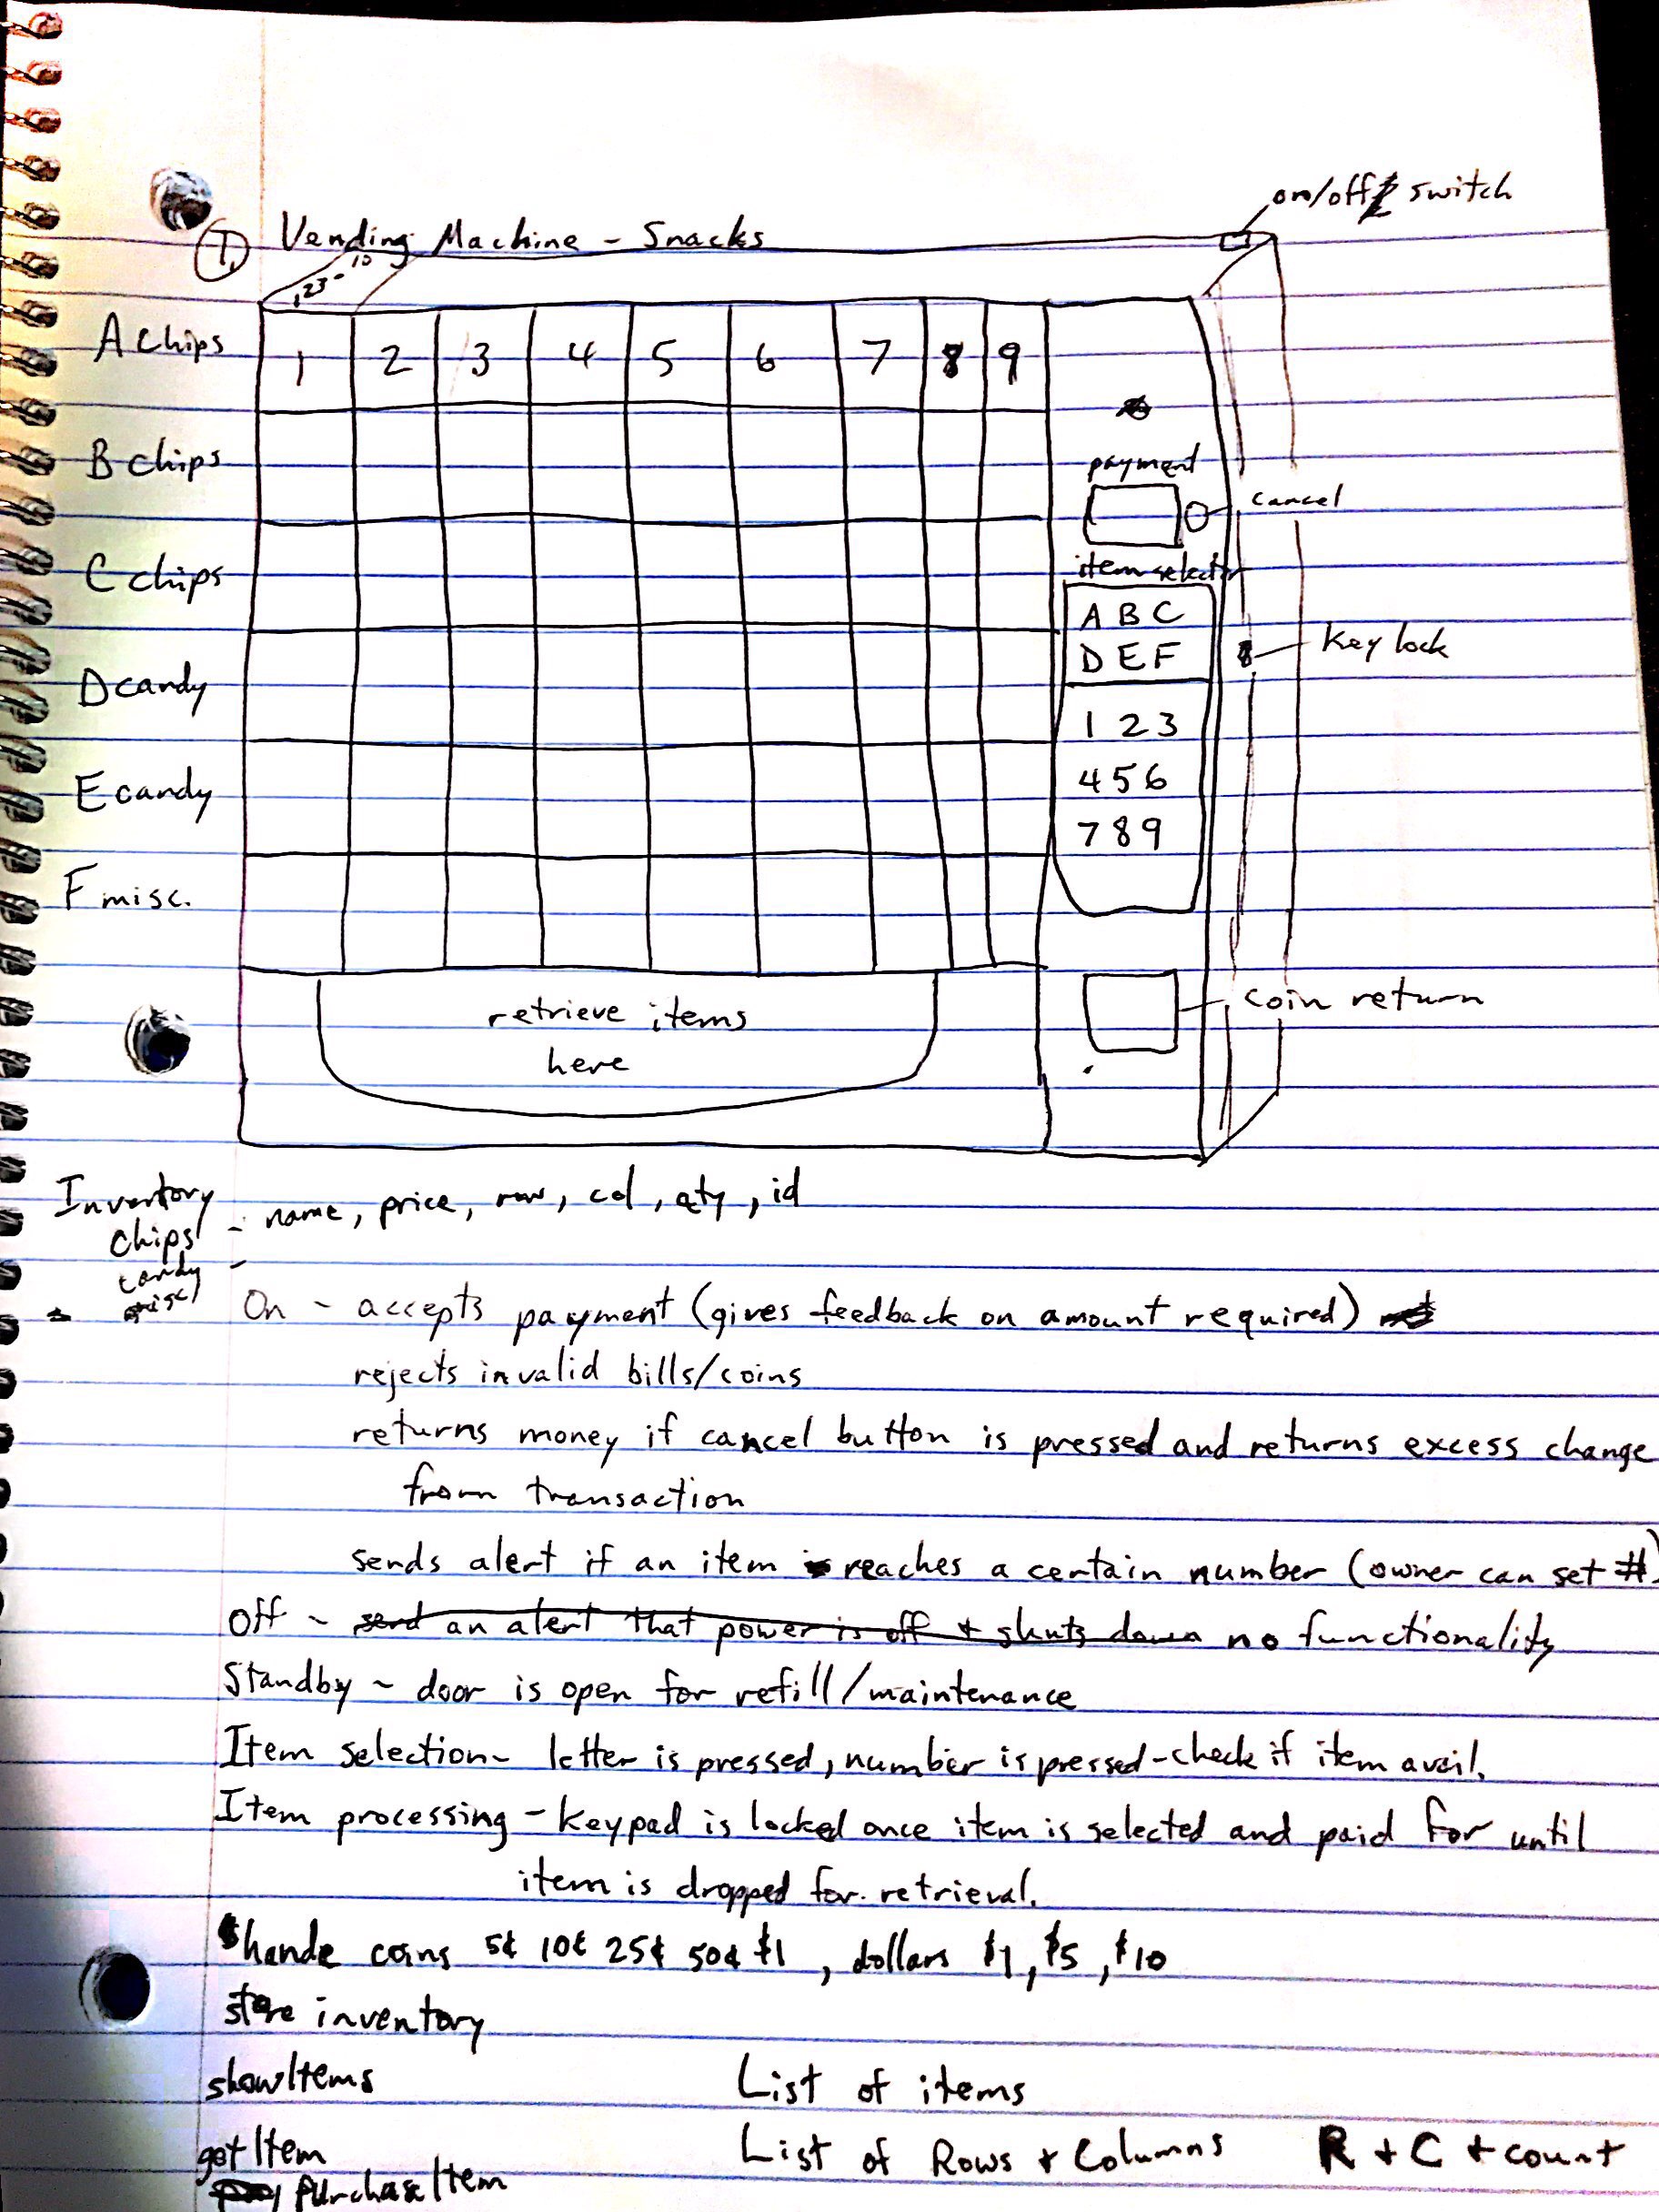 on/off switch
1. Vending Machine - Snacks
123-10
A chips 1 2 3 4 5 6 7 8 9
B chips
payment
cancel
C chips
item selector
A B C
D E F
key lock
D candy
1 2 3
E candy
4 5 6
7 8 9
F misc.
retrieve items
here
coin return
Inventory
chips - name, price, row, col, qty, id
candy -
misc
On - accepts payment (gives feedback on amount required)
rejects invalid bills/coins
returns money if cancel button is pressed and returns excess change
from transaction
sends alert if an item reaches a certain number (owner can set #)
Off - send an alert that power is off + shuts down no functionality
Standby - door is open for refill/maintenance
Item selection - letter is pressed, number is pressed - check if item avail.
Item processing - keypad is locked once item is selected and paid for until
item is dropped for retrieval.
coins 5¢ 10¢ 25¢ 50¢ $1, dollars $1, $5, $10
store inventory
showItems List of items
getItem List of Rows + Columns R + C + count
purchaseItem